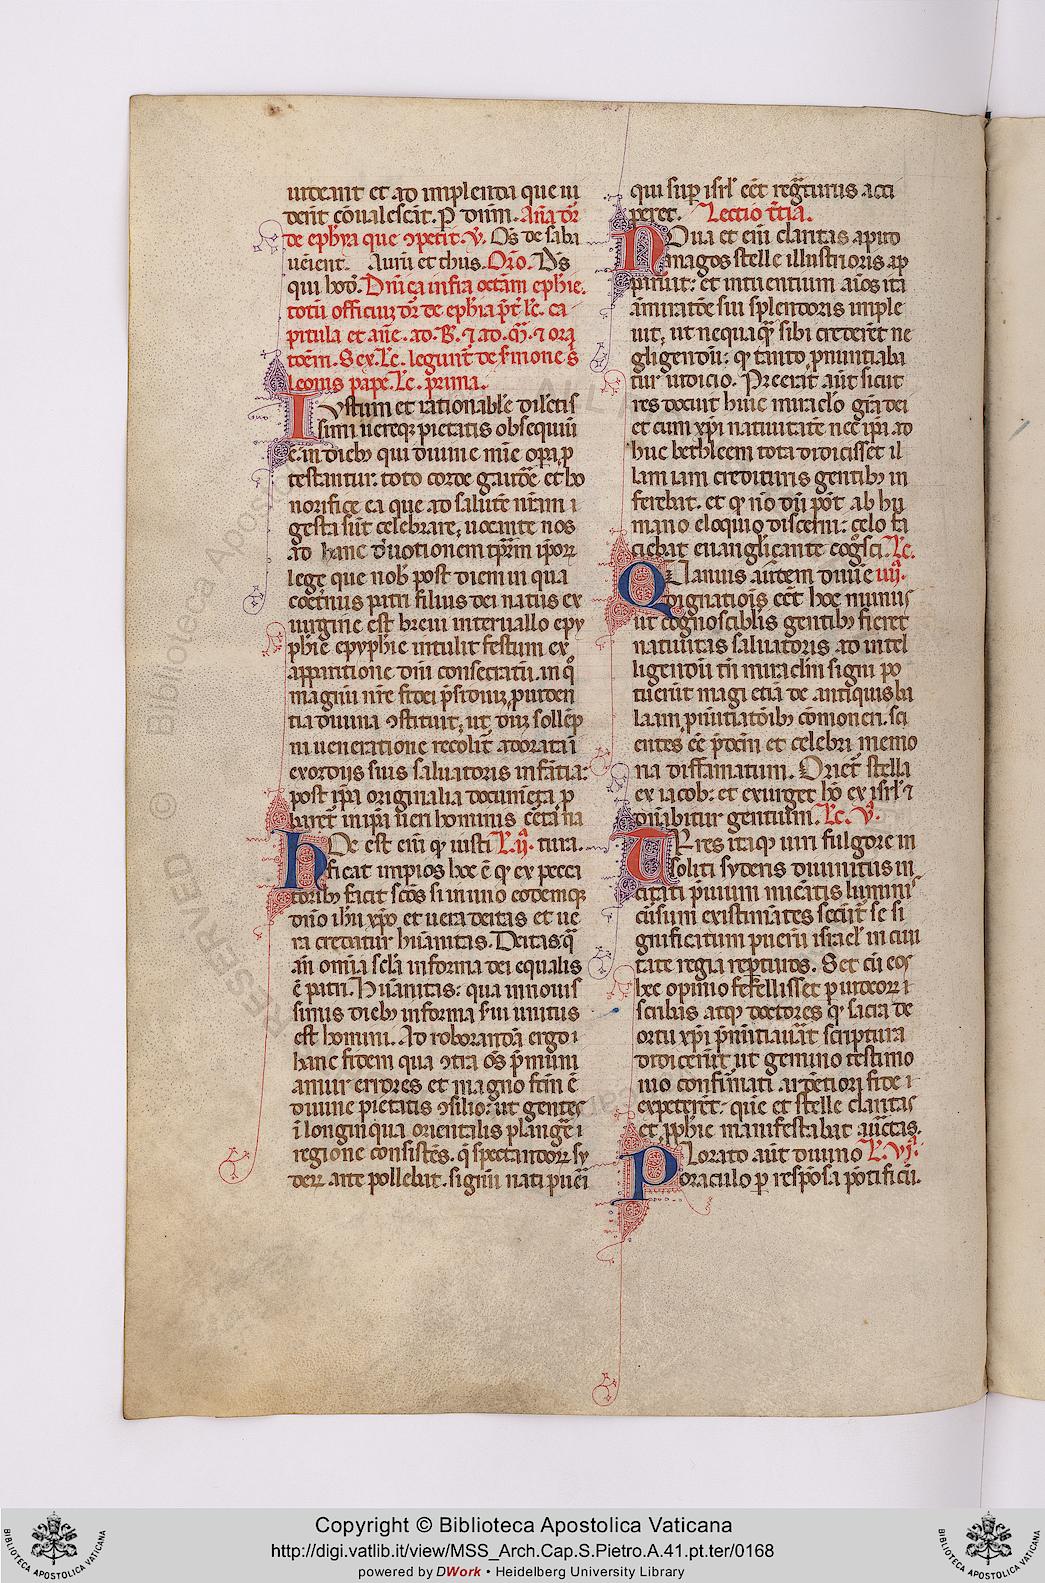 uideant et ad implenda que ui
derit cōualescāt. P dñm. Aña dr̄
de ephyā que ɔpetit. v. Os̄ de saba
uēient. Aurū et thus. Orō. Ds̄
qui hod̄. Dñica infra octām ephie.
totū officiuȝ dr̄ de ephīa p̄t le. ca
pitula et añe. ad. B. ⁊ ad. M̄. ⁊ ora
tōem. Sex. Le. legunt̄ de s̄mone s̄
leonis pape. Le. prima.
Iustum et rationabłe dilectis
simi uereqȝ pietatis obsequiū
ē. in diebȝ qui diuine mīe opa p
testantur: toto corde gaudē̄ et ho
norifice ea que ad salutē nrām ī
gesta sūt celebrare, uocante nos
ad hanc deuotionem tp̄rm ip̄orꝝ
lege que nobˀ post diem in qua
coetnus patri filius dei natus ex
uirgine est breui interuallo epy
phie epyphie intulit festum ex
apparitione dñi consecratū. in qͦ
magnū nr̄e fidei p̄sidiuȝ, puiden
tia diuina ɔstituit, ut dnȝ sollēp
ni ueneratione recolit̄ adorata ī
exordijs suis saluatoris infātia:
post ip̄a originalia documēta p
haret̄ in ip̄a ueri hominis cēta na
Hec est eni qͥ iusti L. ıȷ. tura.
ficat impios hoc ē qͥ ex pecca
toribȝ facit scōs si in uno eodemqȝ
dño ihū xp̄o et uera deitas et ue
ra credatur hūanitas. Deitas qͣ
añ omia scla in forma dei equalis
ē patri. Hūanitas: qua in nouis
simis diebȝ in forma s̄ui unitus
est homini. Ad roborandā ergo ı
hanc fidem qua ɔtra oēs p̄muni
amur errores et magno fcm ē
diuine pietatis ɔsilio: ut gentes
ī longinqua orientalis plangē ı
regione consistēs. q̄ spectandorꝝ sy
derꝝ arte pollebat. signū nati pueri
qui sup isrł eēt regͣturus acci
peret. Lectio t̄tia.
Noua et eni claritas aputo
magos stelle illustrioris ap
paruit: et intuentium aīos ita
āmiratōe sui splendoris imple
uit, ut nequaqͣ sibi crederēt ne
gligendū: qͥ tanto, p̄nuntiaba
tur iudicio. Preerat aūt sicut
res docuit huic miraclo grā dei
et cum xp̄i natiuitatē nec ip̄a ad
huc bethleem tota didicisset il
lam iam credituris gentibȝ in
ferebat. et qͥ nō dū pōt ab hu
mano eloquio discerni: celo fa
ciebat euanglicante cogͦsci. Le.
Quamuis autem diuine ıııȷ.
dignatiois eēt hoc munus
ut cognoscibłis gentibȝ fieret
natiuitas saluatoris. ad intel
ligendū tn̄ miraclm signi po
tuerūt magi etiā de antiquis ba
laam p̄nūtiatoibȝ cōmoneri. sci
entes eē p̄dcm et celebri memo
ria diffamatum. Oriet̄ stella
ex iacob: et exurget hō ex isrł ⁊
dn̄abitur gentium. Le. v.
Tres itaqȝ uiri fulgore in
soliti syderis diuinitus in
citati p̄uium micātis luminis
cūsum existimātes secuti se si
gnificatum puerū israel in ciui
tate regia reptuuos. Set cū eos
hec opinio fefellisset p iudeorꝝ ı
scribas atqȝ doctores qͥ sacra de
ortu xp̄i p̄nūtiauāt scriptura
didicerūt ut gemino testimo
nio confirmati ardētiori fide ı
expeterēt: quē et stelle claritas
et ꝓphie manifestabat auctas.
Plorato aūt diuino L. vȷ.
oraculo p respōsa pōtificū.
Copyright © Biblioteca Apostolica Vaticana
http://digi.vatlib.it/view/MSS_Arch.Cap.S.Pietro.A.41.pt.ter/0168
powered by DWork • Heidelberg University Library